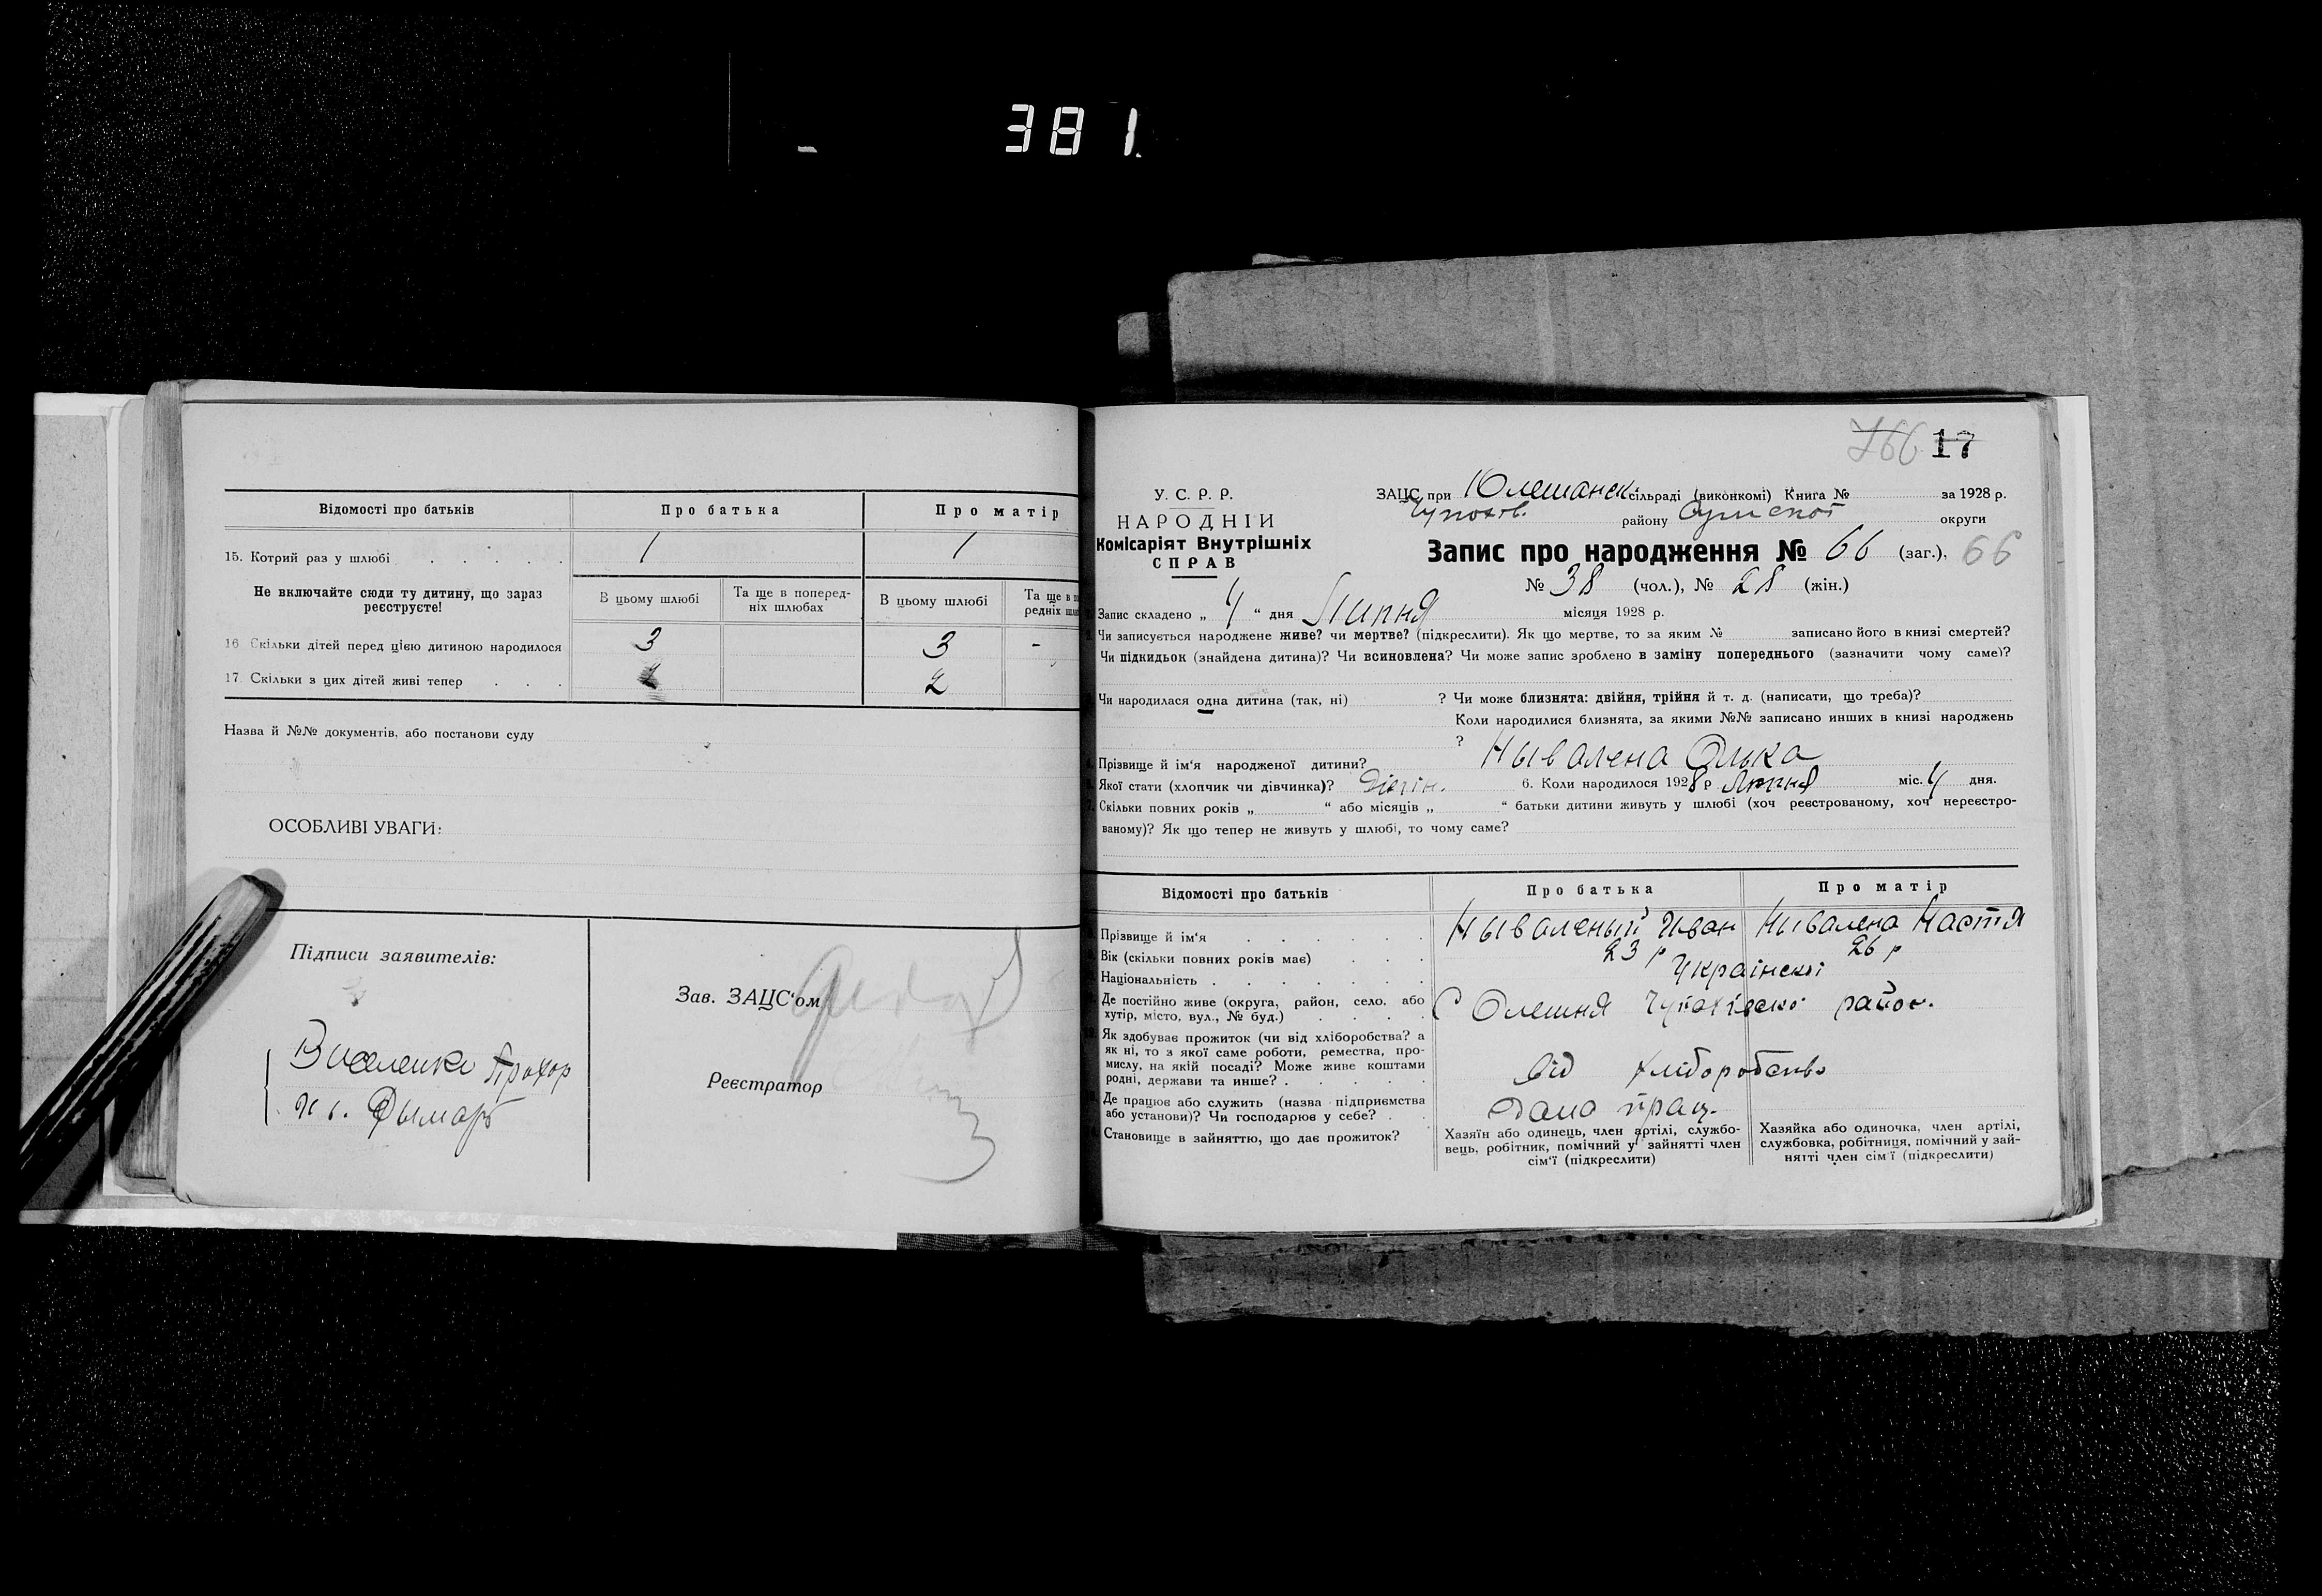 381.
Відомості про батьків Про батька Про матір
15. Котрий раз у шлюбі 1 1
Не включайте сюди ту дитину, що зараз реєструєте!
В цьому шлюбі Та ще в поперед-
ніх шлюбах
В цьому шлюбі Та ще в
редніх
16 Скільки дітей перед цією дитиною народилося 3 3 -
17. Скільки з цих дітей живі тепер 2 2
Назва й №№ документів, або постанови суду
ОСОБЛИВІ УВАГИ:
Підписи заявителів:
Прохор
Зав. ЗАЦС‘ом
Реєстратор
766 17
У. С. Р. Р.
НАРОДНІЙ
Комісаріят Внутрішніх
СПРАВ
ЗАЦС при Юлешанск сільраді (виконкомі) Книга № за 1928 р.
району округи
Запис про народження № 66 (заг.), 66
№ 38 (чол.), № 28 (жін.)
Запис складено „ 4 “ дня Липня місяця 1928 р.
Чи записується народжене живе? чи мертве? (підкреслити). Як що мертве, то за яким № записано його в книзі смертей?
Чи підкидьок (знайдена дитина)? Чи всиновлена? Чи може запис зроблено в заміну попереднього (зазначити чому саме)?
Чи народилася одна дитина (так, ні) ? Чи може близнята: двійня, трійня й т. д. (написати, що треба)?
Коли народилися близнята, за якими №№ записано инших в книзі народжень
?
Прізвище й ім‘я народженої дитини? Нывалена Олька
Якої стати (хлопчик чи дівчинка)? 6. Коли народилося 1928 р Липня міс. 4 дня.
Скільки повних років „ “ або місяців „ “ батьки дитини живуть у шлюбі (хоч реєстрованому, хоч нереєстро-
ваному)? Як що тепер не живуть у шлюбі, то чому саме?
Відомості про батьків Про батька Про матір
Прізвище й ім‘я Нываленый Иван Нивалена Настя
Вік (скільки повних років має) 23 р 26 р
Національність Українскі
Де постійно живе (округа, район, село, або
хутір, місто, вул., № буд.) С Олешня район.
Як здобуває прожиток (чи від хліборобства? а
як ні, то з якої саме роботи, ремества, про-
мислу, на якій посаді? Може живе коштами
родні, держави та инше? від хліборобства
Де працює або служить (назва підприємства
або установи)? Чи господарює у себе? Дома прац.
Становище в зайняттю, що дає прожиток?
Хазяїн або одинець, член артілі, службо-
вець, робітник, помічний у зайнятті член
сім‘ї (підкреслити)
Хазяйка або одиночка, член артілі,
службовка, робітниця, помічний у зай-
нятті член сім‘ї (підкреслити)